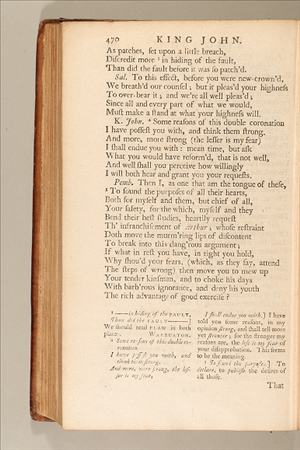 470 KING JOHN.
As patches, ſet upon a little breach,
Diſcredit more ³ in hiding of the fault,
Than did the fault before it was ſo patch'd.
Sal. To this effect, before you were new-crown'd,
We breath'd our counſel; but it pleas'd your highneſs
To over-bear it; and we're all well pleas'd;
Since all and every part of what we would,
Muſt make a ſtand at what your highneſs will.
K. John. ⁴ Some reaſons of this double coronation
I have poſſeſt you with, and think them ſtrong.
And more, more ſtrong (the leſſer is my fear)
I ſhall endue you with: mean time, but aſk
What you would have reform'd, that is not well,
And well ſhall you perceive how willingly
I will both hear and grant you your requeſts.
Pemb. Then I, as one that am the tongue of theſe,
⁵ To ſound the purpoſes of all their hearts,
Both for myſelf and them, but chief of all,
Your ſafety, for the which, myſelf and they
Bend their beſt ſtudies, heartily requeſt
Th' infranchiſement of Arthur; whoſe reſtraint
Doth move the murm'ring lips of diſcontent
To break into this dang'rous argument;
If what in reſt you have, in right you hold,
Why ſhou'd your fears, (which, as they ſay, attend
The ſteps of wrong) then move you to mew up
Your tender kinſman, and to choke his days
With barb'rous ignorance, and deny his youth
The rich advantage of good exerciſe?
³ —in hiding of the FAULT,
Than did the FAULT—]
We ſhould read FLAW in both
places. WARBURTON.
⁴ Some reaſons of this double co-
ronation
I have poſſeſt you with, and
think them ſtrong.
And more, more ſtrong, the leſ-
ſer is my fear,
I ſhall endue you with.] I have
told you ſome reaſons, in my
opinion ſtrong, and ſhall tell more
yet ſtronger; for the ſtronger my
reaſons are, the leſs is my fear of
your diſapprobation. This ſeems
to be the meaning.
⁵ To ſound the purpoſes] To
declare, to publiſh the deſires of
all thoſe.
That